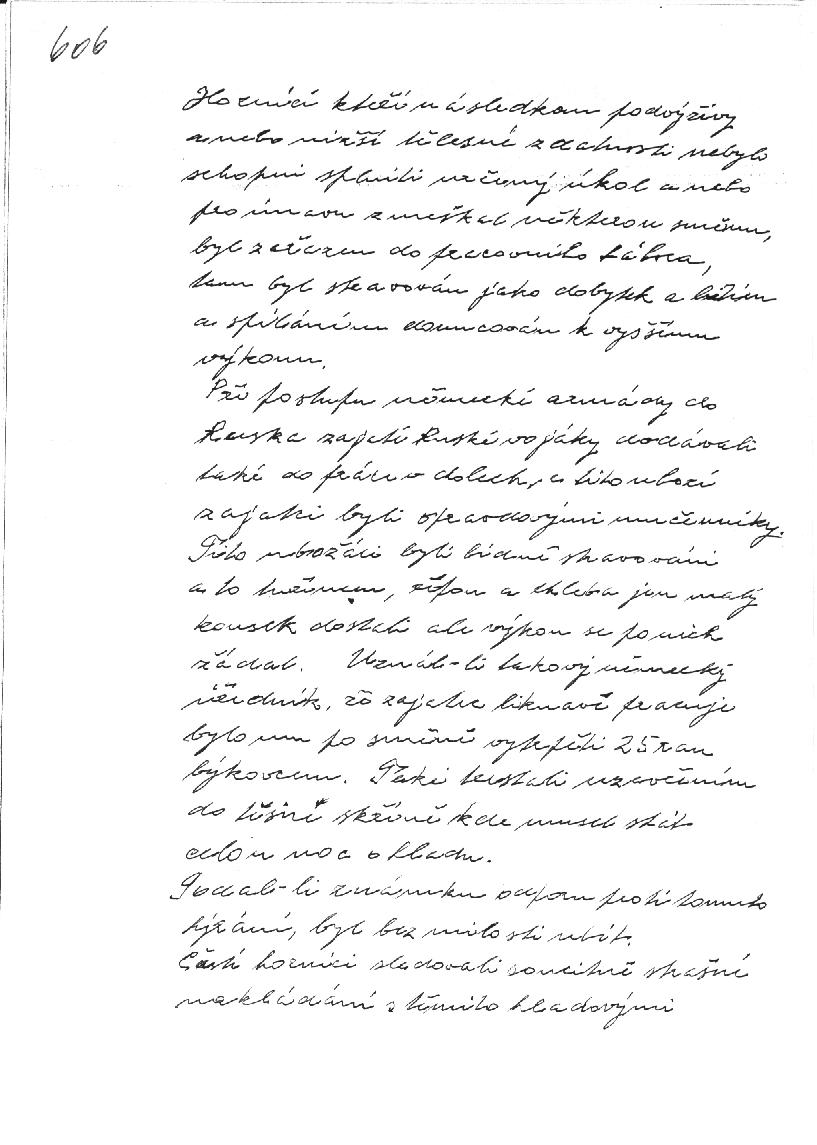 606
Horníci kteří následkem podvýživy
anebo nižší tělesné zdatnosti nebyli
schopni splniti určený úkol anebo
pro únavu zmeškal některou směnu,
byl zařazen do pracovního tábora,
tam byl stravován jako dobytek a bitím
a spíláním donucován k vyššímu
výkonu.
Při postupu německé armády do
Ruska zajatí Ruské vojáky dodávali
také do práce v dolech, a tito ubozí
zajatci byli opravdovými mučenníky.
Tito ubožáci byli bídně stravováni
a to tuřínem, řípou a chleba jen malý
kousek dostali ale výkon se po nich
žádal. Uznal-li takový německý
úředník, že zajatec liknavě pracuje
bylo mu po směně vylepeti 25 ran
býkovcem. Také trestali uzavřením
do těsné skříně kde musel stát
celou noc o hladu.
Podal-li známku odporu proti tomuto
týrání, byl bez milosti ubit.
Čeští horníci sledovali soucitně strašné
nakládání s těmito hladovými